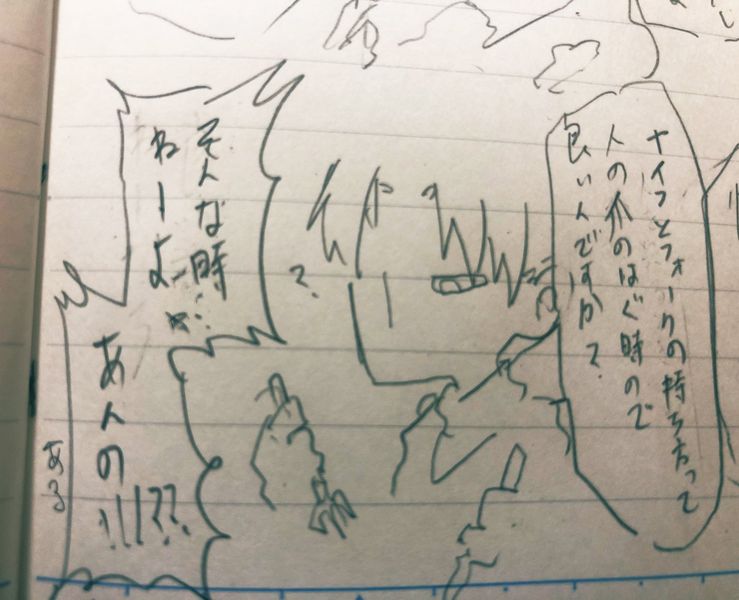 ナイフとフォークの持ち方って
人の爪のはぐ時ので
良いんですか?
?
そんな時…
ねーよ
あんの!!!??
ある